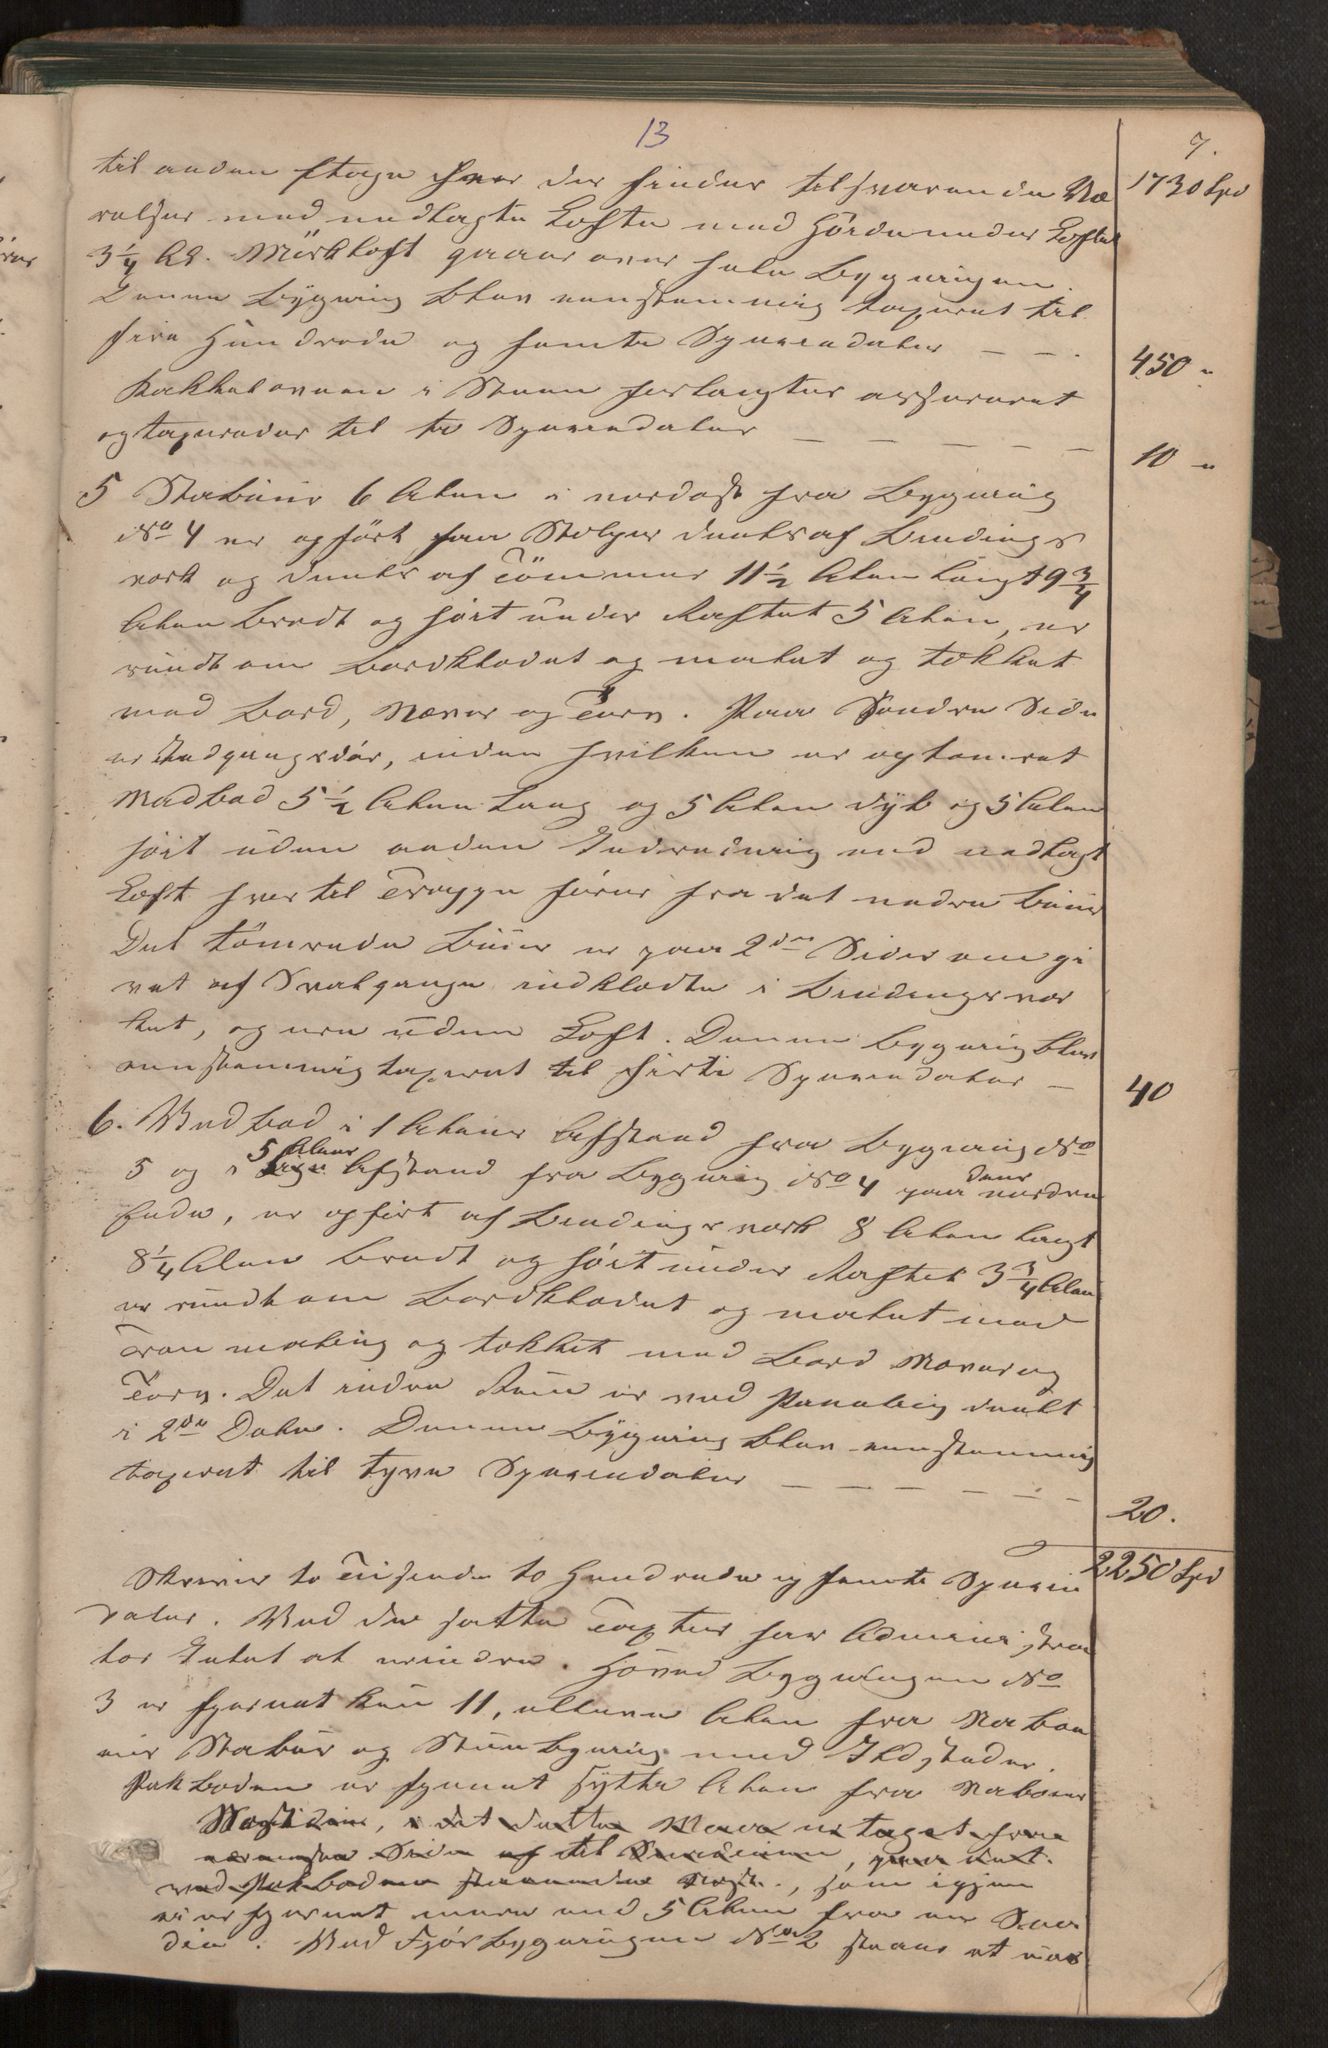 13
7.
til anden Etage hvor der findes tilsvarende Væ 1730 Spd
relser med nedlagte Lofte med Höide under Loftet
3 1/4 Al. Mörkloft gaaer over hele Bygningen.
Denne Bygning blev eenstemmig taxeret til
fire Hundrede og femti Speciedaler — — . 450 "
Kakkelovnen i Stuen forlangtes assureret
og taxeredes til ti Speciedaler — — — — — 10 "
5 Stabuur 6 Alen i nordost fra Bygning
No 4 er opfört paa Stolper deels af Bindings
verk og deels af Tömmer 11 1/2 Alen langt 9 3/4
Alen bredt og höit under Raftet 5 Alen, er
rundt om bordklædet og malet og tækket
med Bord, Næver og Torv. Paa Söndre Side
er Indgangsdör, inden hvilken er optömret
Madbod 5 1/2 Alen lang og 5 Alen dyb og 5 Alen
höit uden anden Indredning end nedlagt
Loft hvortil Trappe förer fra det nedre buur
Det tömrede Buur er paa 2de Sider omgi
vet af Svalgange indklædte i Bindingsver
ket, og ere uden Loft. Denne Bygning blev
eenstemmig taxeret til firti Speciedaler — 40
6. Vedbod i 1 Alens Afstand fra Bygning No
5 og i 5 Alens Afstand fra Bygning No 4 paa dens nordre
Ende, er opfört af Bindingsverk 8 Alen langt
8 1/4 Alen bredt og höit under Raftet 3 3/4 Alen
er rundt om bordklædet og malet med
Tranmaling og tækket med Bord Næver og
Torv. Det indre Rum er ved Paneling deelt
i 2de Dele. Denne Bygning blev eenstemmig
taxeret til tyve Speciedaler — — — — — — 20.
2250 Spd
Skriver to Tusende to Hundrede og femti Specie
daler. Ved de satte Taxter har Administra
tor Intet at erindre. Hoved Bygningen No
3 er fjernet kun 11, elleve Alen fra Naboe
ens Stabur og Stuebygning med Ildsteder.
Pakboden er fjernet sytten Alen fra Naboens
i det dette Maal er taget fra
Side af til, paa det
ved Pakboden staaende, som igjen
er fjernet mere end 5 Alen fra
. Ved Fjösbygningen No 2 staaer et